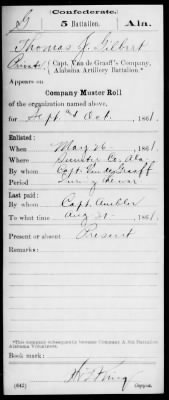 Confederate.
G 5 Battalion. Ala.
Thomas J. Gilbert
Private, Capt. Van de Graaff's Company, Alabama Artillery Battalion.*
Appears on
Company Muster Roll
of the organization named above,
for Sept and Oct., 1861.
Enlisted:
When May 26, 1861.
Where Sumter Co. Ala.
By whom Capt. Van de Graaff
Period During the war
Last paid:
By whom Capt. Ambler
To what time Aug 31, 1861.
Present or absent Present
Remarks:
*This company subsequently became Company A 5th Battalion Alabama Volunteers.
Book mark:
(642) Copyist.